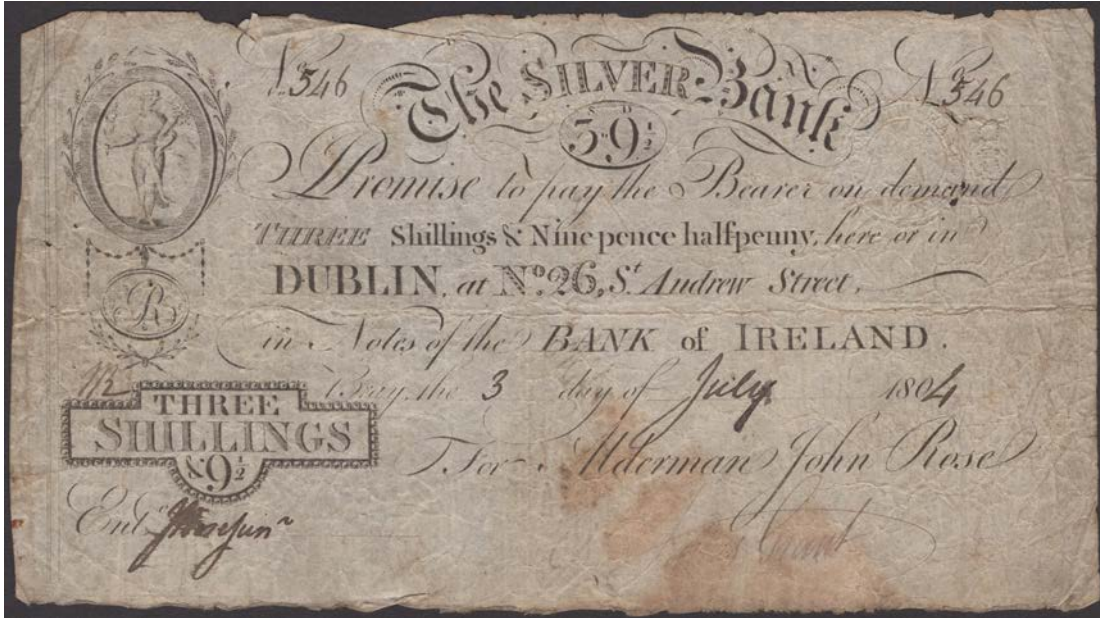 No. 546
No. 546
The SILVER Bank
S D
3"9 1/2
I Promise to pay the Bearer on demand
THREE Shillings & Nine pence halfpenny, here or in
DUBLIN, at No. 26, St. Andrew Street,
in Notes of the BANK of IRELAND.
R
Bray the 3 day of July 1804
THREE
SHILLINGS
& 9 1/2
For Alderman John Rose
Entd.